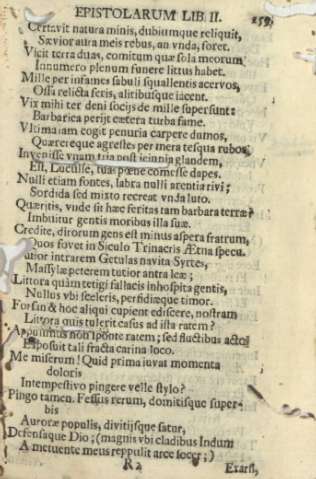 EPISTOLARUM LIB II. 259
Certavit natura minis, dubiumque reliquit,
Sævior aura meis rebus, an vnda, foret.
Vicit terra duas, comitum quæ sola meorum
Innumero plenum funere littus habet.
Mille per infames sabuli squallentis acervos,
Ossa relicta feris, alitibusque iacent.
Vix mihi ter deni socijs de mille supersunt:
Barbarica perijt cætera turba fame.
Vltima iam cogit penuria carpere dumos,
Quærereque agrestes per mera tesqua rubos
Invenisse vnam tria post ieiunia glandem,
Est, Luculle, tuas pœne comesse dapes.
Nulli etiam fontes, labra nulli arentia rivi;
Sordida sed mixto recreat vnda luto.
Quæritis, vnde sit hæc feritas tam barbara terræ?
Imbuitur gentis moribus illa suæ.
Credite, dirorum gens est minus aspera fratrum,
Quos fovet in Siculo Trinacris Ætna specu.
utior intrarem Getulas navita Syrtes,
Massylæ peterem tutior antra leæ;
Littora quàm tetigi fallacis inhospita gentis,
Nullus vbi sceleris, perfidiæque timor.
Forsan & hoc aliqui cupient ediscere, nostram
Littora quis tulerit casus ad ista ratem?
Appulimus non sponte ratem; sed fluctibus acto
Exposuit tali fracta carina loco.
Me miserum! Quid prima iuvat momenta
doloris
Intempestivo pingere velle stylo?
Pingo tamen. Fessus rerum, domitisque super-
bis
Auroræ populis, divitijsque satur,
Defensaque Dio; (magnis vbi cladibus Indum
A metuente meus reppulit arce socer;)
R 2 Exarsi,